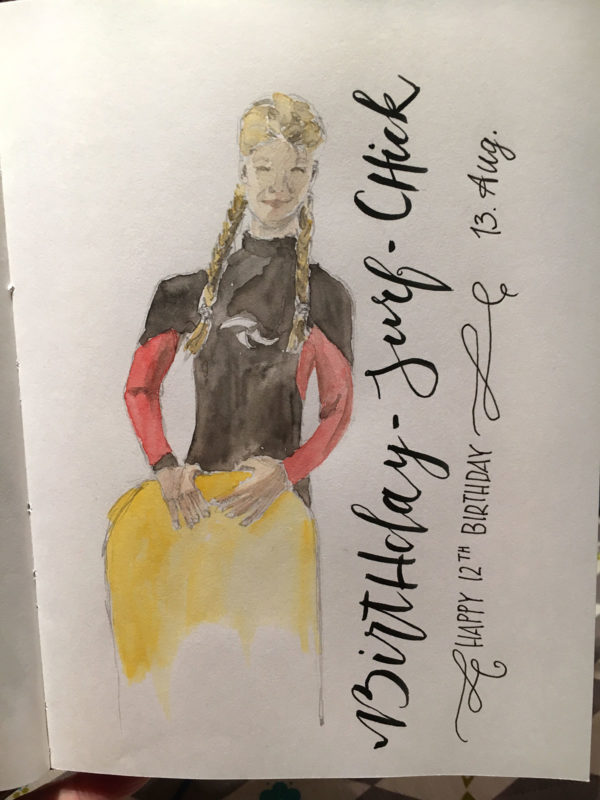 BirtHday-Surf-CHick
HAPPY 12TH BIRTHDAY 13. Aug.